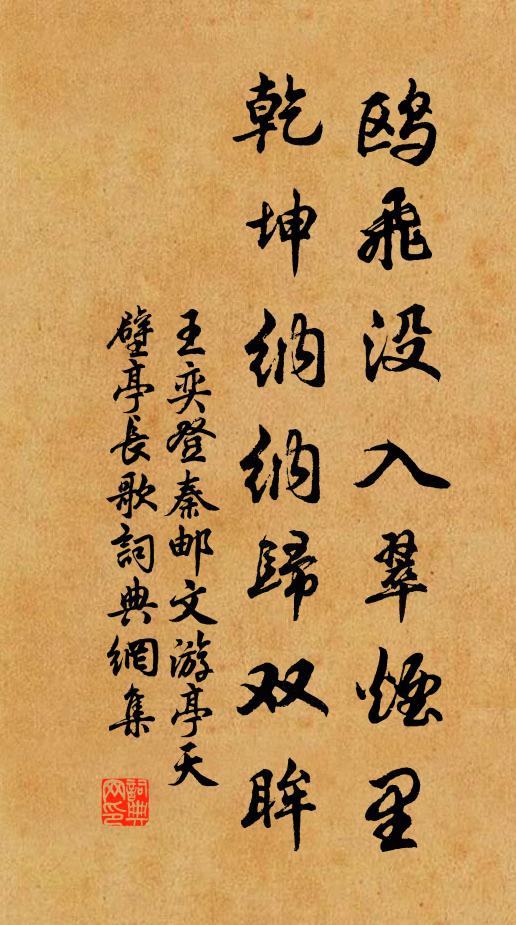 鸥飛没入翠煙里
乾坤纳纳歸双眸
王奕登秦邮文游亭天
壁亭長歌詞典網集
詞典网印